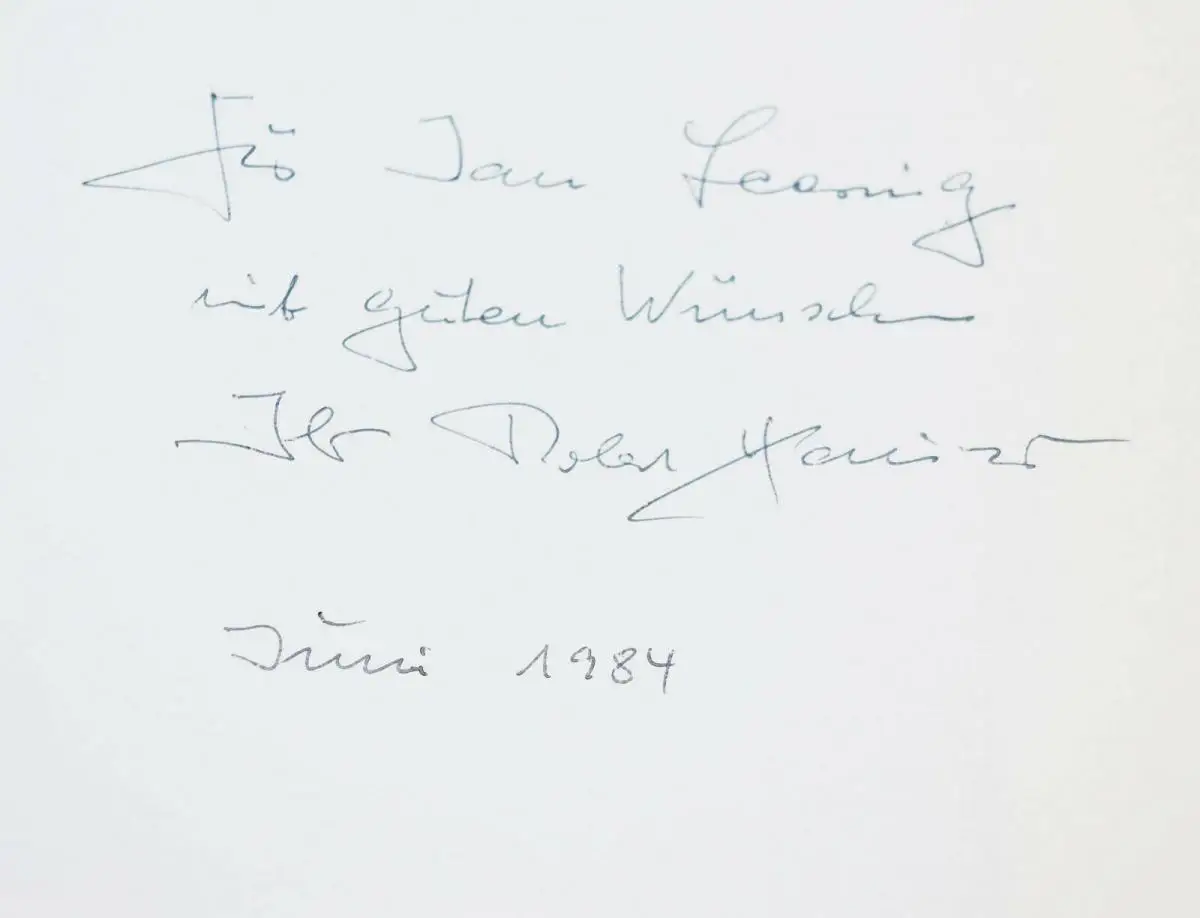 Für Jan
mit guten Wünschen
Ihr Robert
Juni 1984